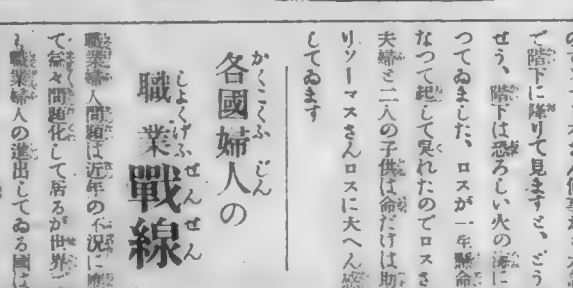 で階下に降りて見ますと、どう
せう、階下は恐ろしい火の海に
つてゐました、ロスが一生懸命
なつて起して呉れたのでロスさ
夫婦と二人の子供は命だけは助
りソーマスさんロスに大へん感
してゐます
各國婦人の
かくこくふじん
職業戰線
しよくげふせんせん
職業婦人問題は近年の不況に
て益々問題化して居るが世界
も職業婦人の進出してゐる國は